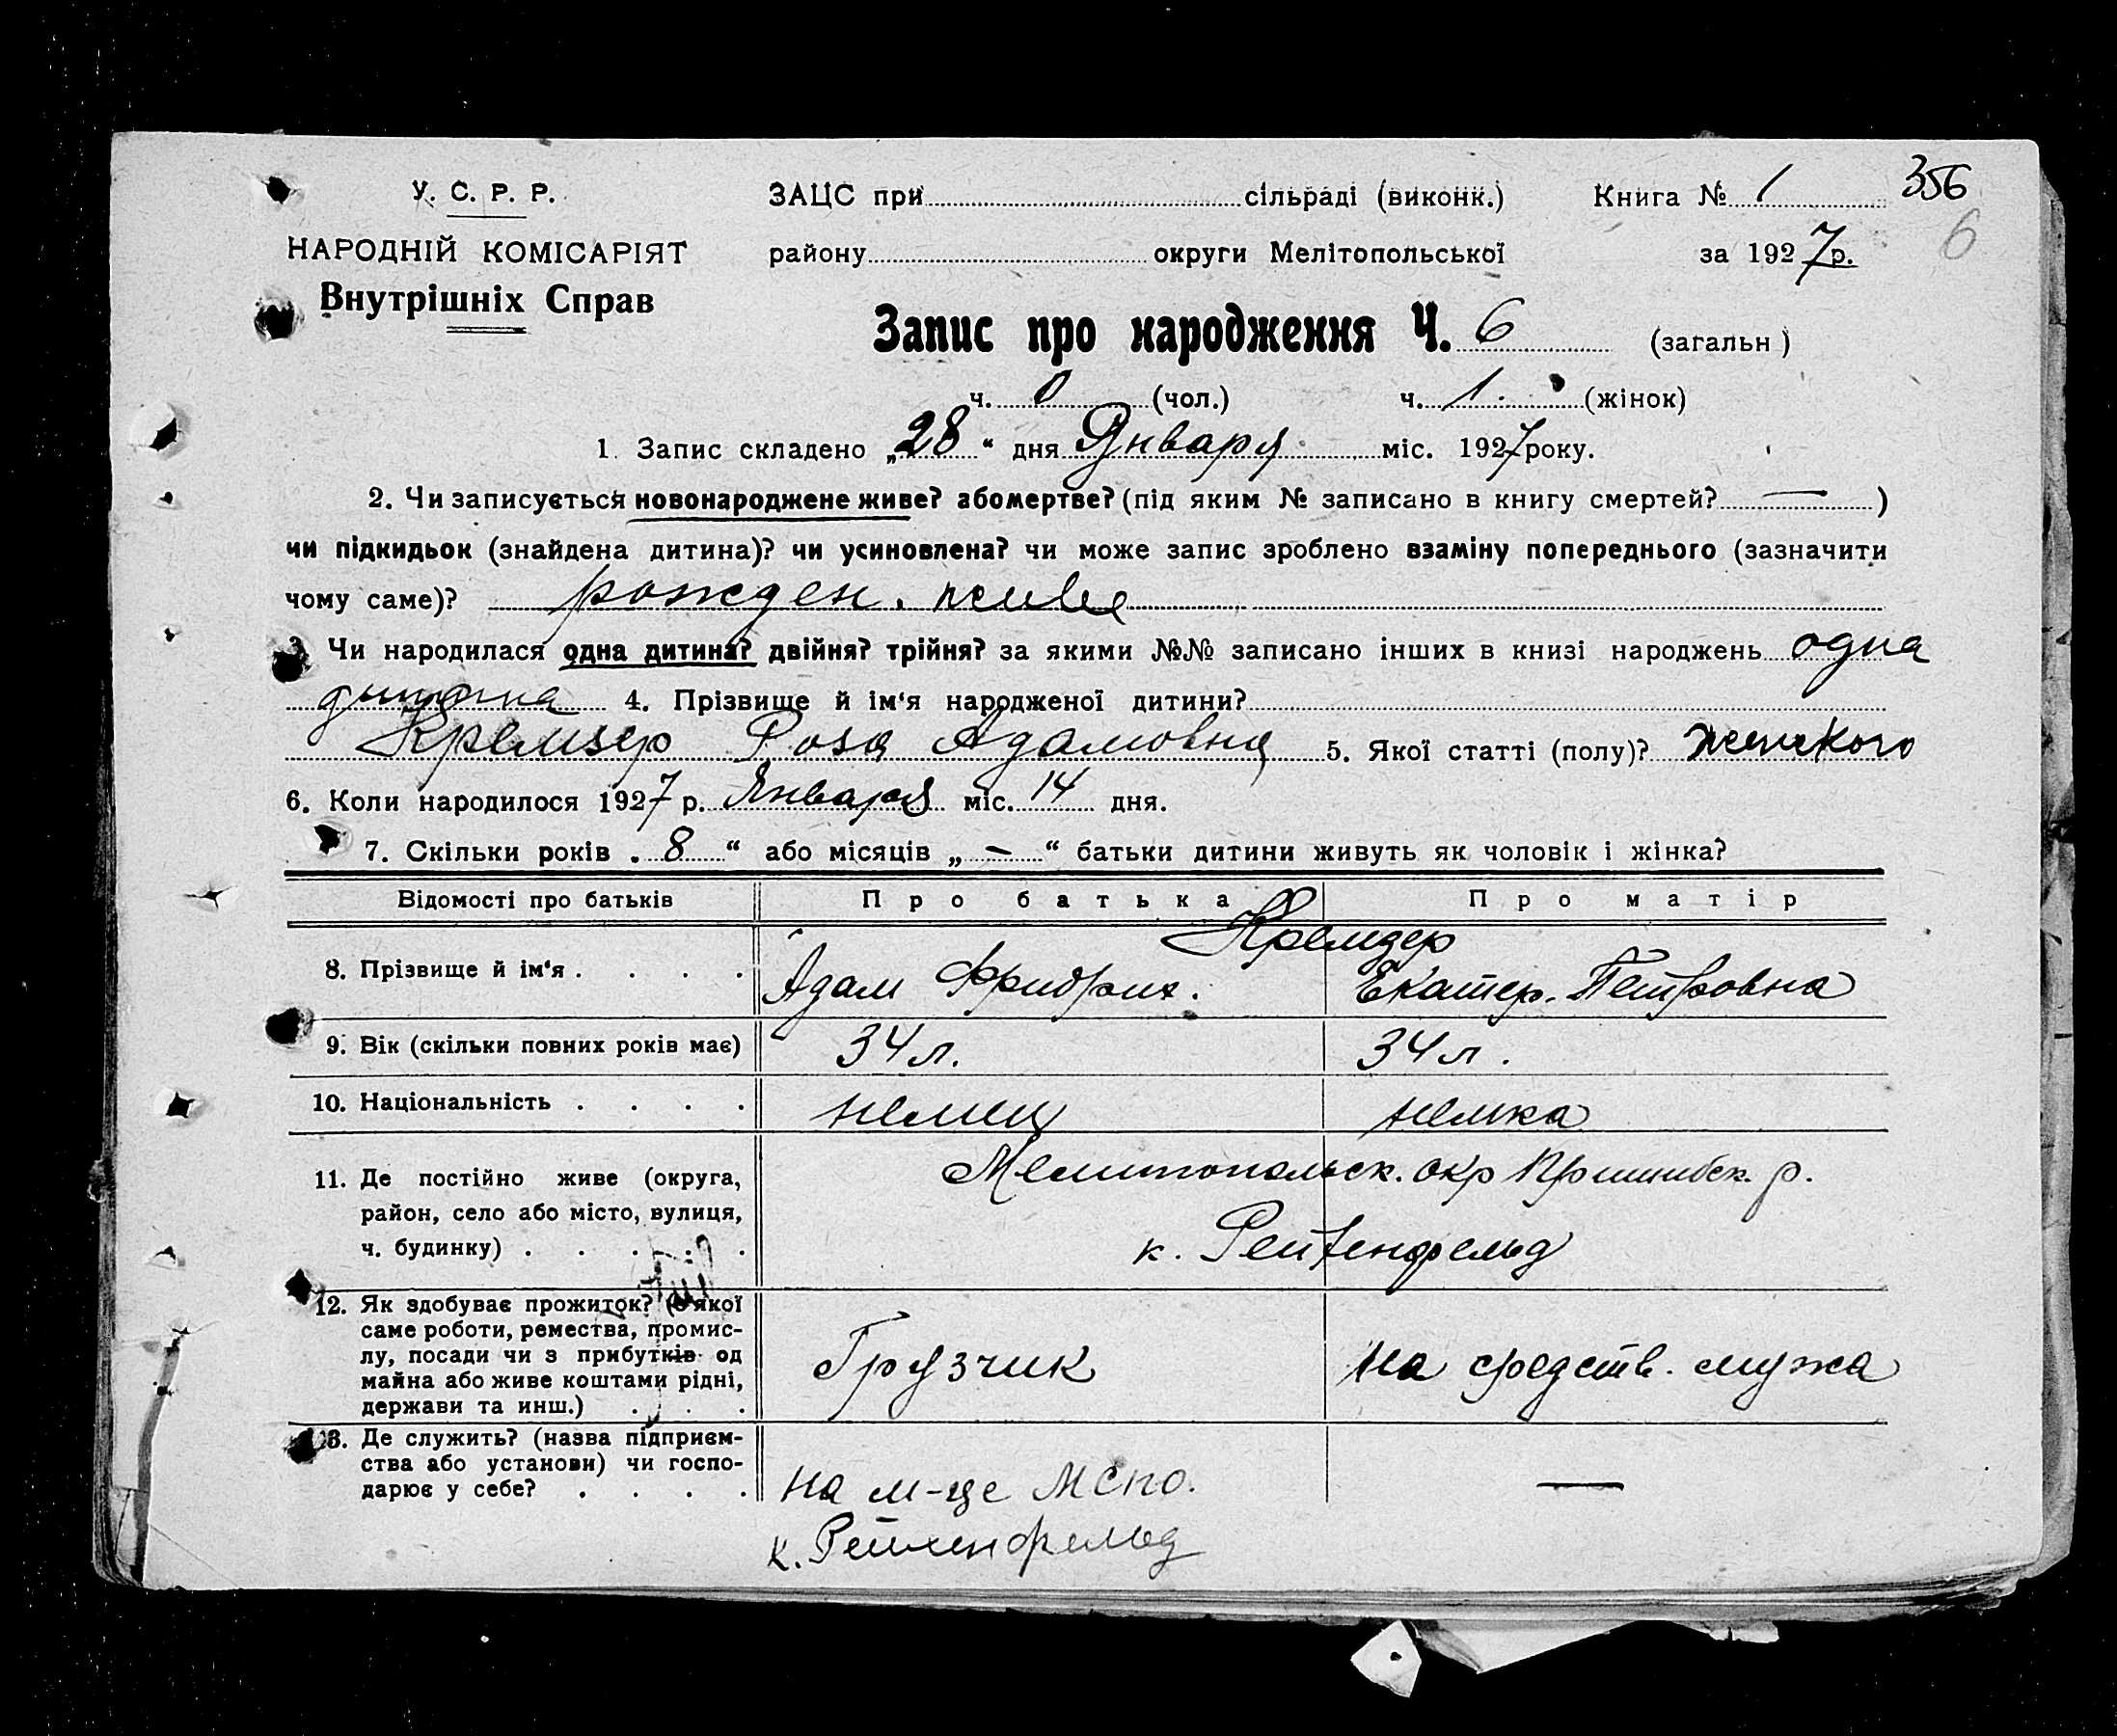 У. С. Р. Р.
НАРОДНІЙ КОМІСАРІЯТ
Внутрішніх Справ
ЗАЦС при сільраді (виконк.)
району округи Мелітопольської
Книга № 1
356
6
за 1927 р.
Запис про народження Ч. 6 (загальн)
ч. 0 (чол.) ч. 1. (жінок)
1. Запис складено „28“ дня Января міс. 1927 року.
2. Чи записується новонароджене живе? або мертве? (під яким № записано в книгу смертей? — )
чи підкидьок (знайдена дитина)? чи усиновлена? чи може запис зроблено взаміну попереднього (зазначити
чому саме)? рожден. живе
3 Чи народилася одна дитина? двійня? трійня? за якими №№ записано інших в книзі народжень одна
дитина 4. Прізвище й ім‘я народженої дитини?
Кремзер Роза Адамовна 5. Якої статті (полу)? женского
6. Коли народилося 1927 р. Января міс. 14 дня.
7. Скільки років „ 8 “ або місяців „ — “ батьки дитини живуть як чоловік і жінка?
Відомості про батьків Про батька Про матір
Кремзер
8. Прізвище й ім‘я . . . . Адам Фридрих. Екатер. Петровна
9. Вік (скільки повних років має) 34 л. 34 л.
10. Національність . . . . немец немка
11. Де постійно живе (округа,
район, село або місто, вулиця,
ч. будинку) . . . . .
Мелитопольск. окр Пришибск. р.
к. Рейхенфельд
12. Як здобуває прожиток? (з якої
саме роботи, ремества, промис-
лу, посади чи з прибутків од
майна або живе коштами рідні,
держави та инш.) . . .
Грузчик на средств. мужа
13. Де служить? (назва підприєм-
ства або установи) чи госпо-
дарює у себе? . . . .
на м-це МСПО. —
к. Рейхенфельд